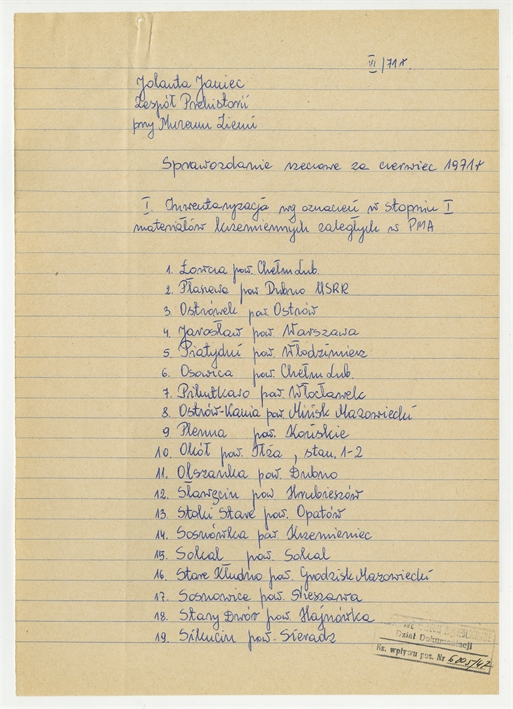 VI/71r.
Jolanta Janiec
Zespół Prehistorii
przy Muzeum Ziemi
Sprawozdanie rzeczowe za czerwiec 1971r
I. Inwentaryzacja wg oznaceń w stopniu I
materiałów krzemiennych zaległych w PMA
1. Łowcia pow. Chełm Lub.
2. pow Dubno USRR
3. Ostrówek pow Ostrów
4. Jarosław pow Warszawa
5. Piatydni pow. Włodzimierz
6. Osowica pow. Chełm Lub.
7. pow Włocławek
8. Ostrów-Kania pow. Mińsk Mazowiecki
9. pow. Końskie
10. Okół pow. Iłża, stan. 1-2
11. Olszanka pow. Dubno
12. Sławęcin pow Hrubieszów
13. Stoki Stare pow. Opatów
14. Sosnówka pow Krzemieniec
15. Sokal pow. Sokal
16. Stare Kłudno pow. Grodzisk Mazowiecki
17. Sosnowice pow.
18. Stary Dwór pow. Hajnówka
19. pow. Sieradz
Dział Dokumentacji
Ks. wpływu poz. Nr